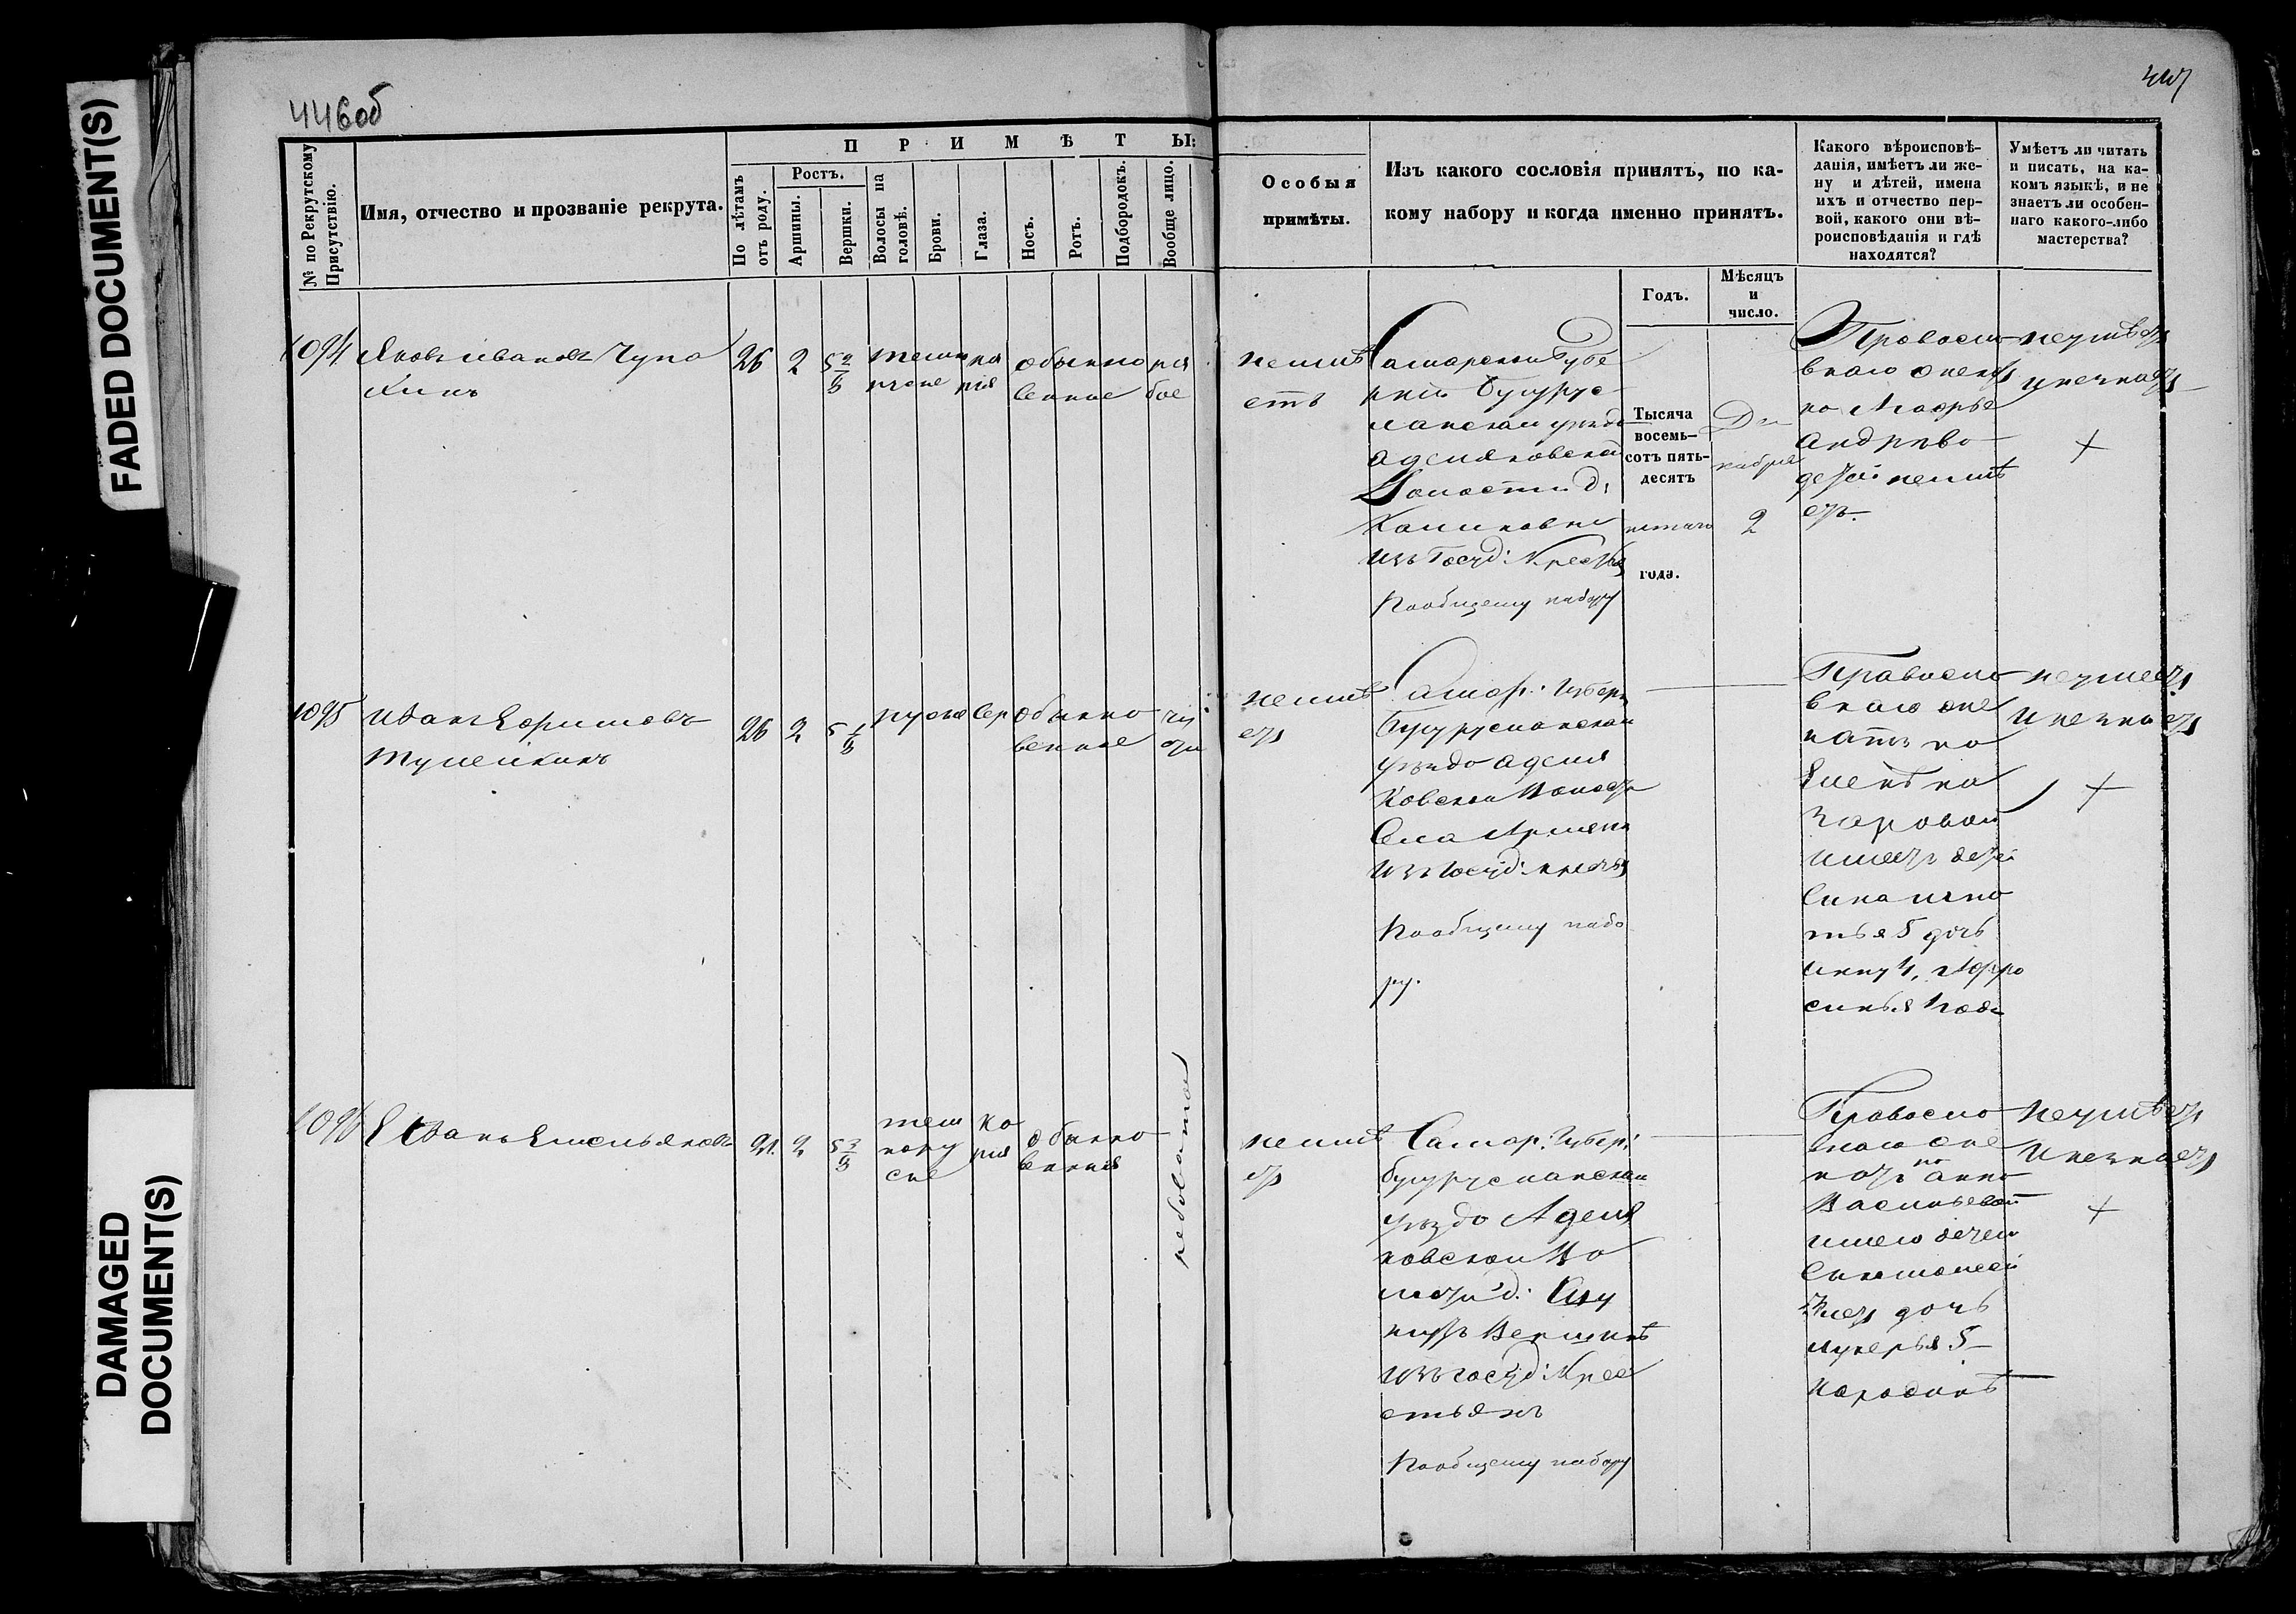 FADED DOCUMENT(S)
DAMAGED
DOCUMENT(S)
446об
447
№ по Рекрутскому
Присутствію.
Имя, отчество и прозваніе рекрута.
П Р И М Ѣ Т Ы:
По лѣтамъ
отъ роду.
Ростъ.
Аршины.
Вершки.
Волосы на
головѣ.
Брови.
Глаза.
Носъ.
Ротъ.
Подбородокъ.
Вообще лицо.
Особыя
примѣты.
Изъ какого сословія принятъ, по ка-
кому набору и когда именно принятъ.
Годъ.
Мѣсяцъ
и
число.
Какого вѣроисповѣ-
данія, имѣетъ ли же-
ну и дѣтей, имена
ихъ и отчество пер-
вой, какого они вѣ-
роисповѣданія и гдѣ
находятся?
Умѣетъ ли читать
и писать, на ка-
комъ языкѣ, и не
знаетъ ли особен-
наго какого-либо
мастерства?
1094
Яковъ Ивановъ Чупа
хинъ
26
2
5 2/8
темно
ка
рія
обыкно
венные
ря
бое
неимѣ
етъ
Самарской Губе
рніи Бугурус
ланскаго уѣзда
Аделяковской
Волости д:
изъ Госуд: Крестьянъ
Пообщему набору
Тысяча
восемь-
сотъ пять-
десятъ
пятаго
года.
Де
кабря
2
Правосла
внаго женатъ
на Марфѣ
Андрѣево
детей неимѣ
етъ.
неумѣетъ
и незнаетъ
+
1095
Иванъ Ефимовъ
Тупейкинъ
26
2
5 1/8
русые
сер
обыкно
венные
чи
сти
неимѣ
етъ
Самар: Губерн
Бугурусланскаго
уѣзда Аделя
ковской Волости
Села
изъ Госуд: крестья
Пообщему набо
ру.
Правосла
внаго же
натъ на
Еленѣ На
заровой
имеетъ детей
Сына Игна
тья 5 дочь
Анну 4, Афро
синья 1 года
неумеетъ
и незнаетъ
+
1096
Иванъ Емельяновъ
21.
2
5 3/8
темно
ру
сые
ка
рія
обыкно
венные
рябоватое
неимѣ
етъ
Самар: Губер:
бугурусланскаго
уѣзда Аделя
ковской Во
лости д:
Вершинѣ
изъ госуд: Кре
стьянъ
Пообщему набору
Правосла
внаго же
натъ на Анне
Васильевой
имею детей
дочь
Лукерья 5
Народинѣ
Неумѣетъ
и незнаетъ
+